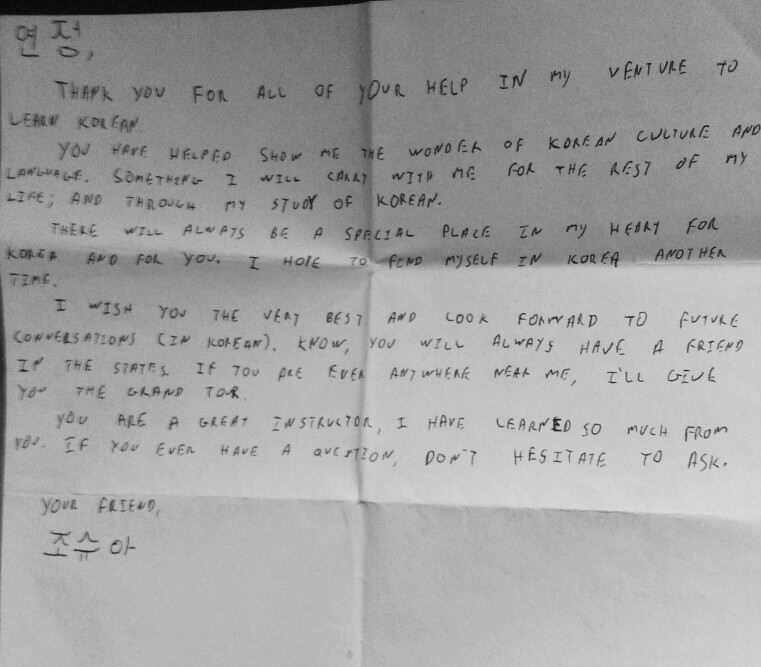 연정,
THANK YOU FOR ALL OF YOUR HELP IN MY VENTURE TO
LEARN KOREAN.
YOU HAVE HELPED SHOW ME THE WONDER OF KOREAN CULTURE AND
LANGUAGE. SOMETHING I WILL CARRY WITH ME FOR THE REST OF MY
LIFE; AND THROUGH MY STUDY OF KOREAN.
THERE WILL ALWAYS BE A SPECIAL PLACE IN MY HEART FOR
KOREA AND FOR YOU. I HOPE TO FIND MYSELF IN KOREA ANOTHER
TIME.
I WISH YOU THE VERY BEST AND LOOK FORWARD TO FUTURE
CONVERSATIONS (IN KOREAN). KNOW, YOU WILL ALWAYS HAVE A FRIEND
IN THE STATES. IF YOU ARE EVER ANYWHERE NEAR ME, I'LL GIVE
YOU THE GRAND TOUR.
YOU ARE A GREAT INSTRUCTOR, I HAVE LEARNED SO MUCH FROM
YOU. IF YOU EVER HAVE A QUESTION, DON'T HESITATE TO ASK.
YOUR FRIEND,
조슈아